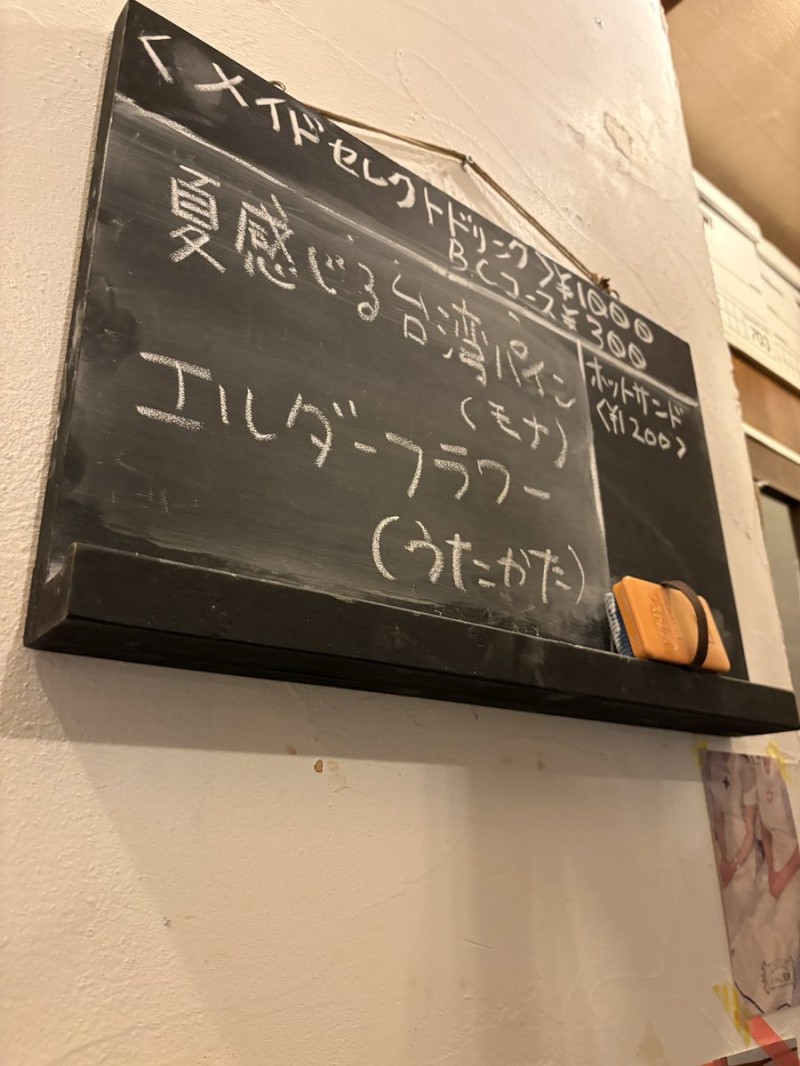 〈メイドセレクトドリンク〉¥1000
BCコース¥300
夏感じる台湾パイン
(モナ)
エルダーフラワー
(うたかた)
ホットサンド
〈¥1200〉
703